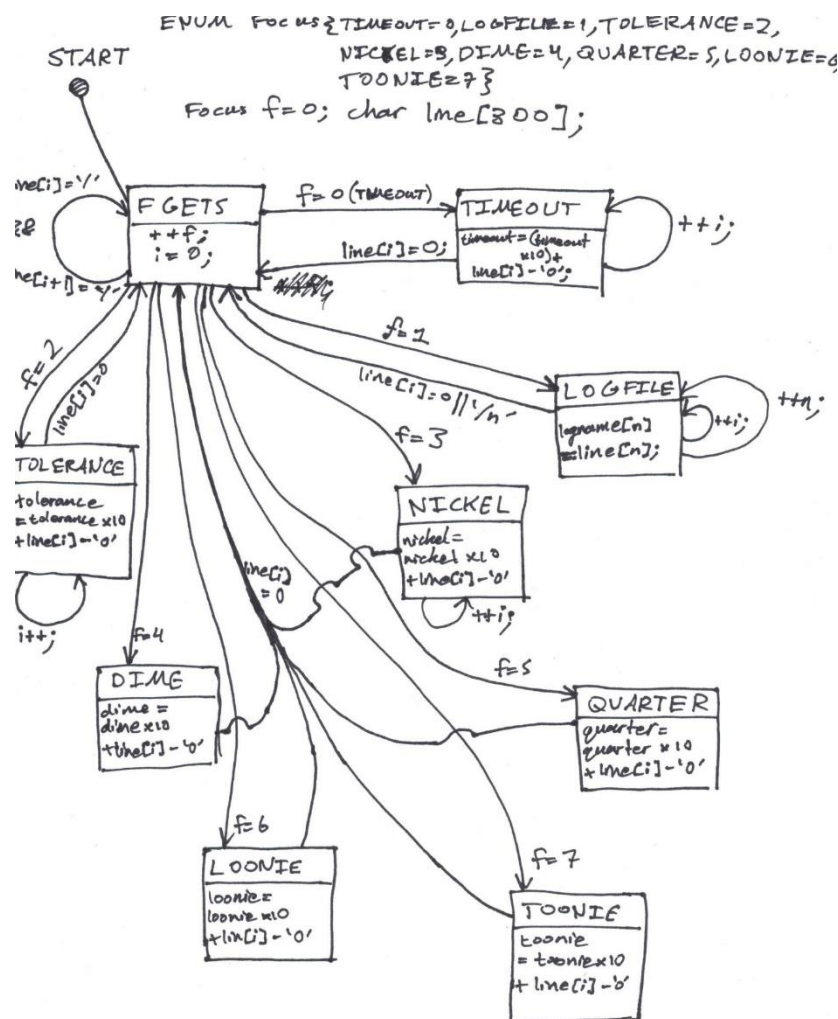 ENUM Focus{TIMEOUT=0,LOGFILE=1,TOLERANCE=2,
NICKEL=3,DIME=4,QUARTER=5,LOONIE=6,
TOONIE=7}
Focus f=0; char line[300];
START
ine[i]='/'
&&
ne[i+1]='/'
FGETS
++f;
i=0;
f=0(TIMEOUT)
line[i]=0;
TIMEOUT
timeout=(timeout
x10)+
line[i]-'0';
++i;
f=1
line[i]=0||'/n'
LOGFILE
logname[n]
=line[n];
++i;
++n;
f=2
line[i]=0
TOLERANCE
tolerance
=tolerance x10
+line[i]-'0'
i++;
f=3
NICKEL
nickel=
nickel x10
+line[i]-'0'
++i;
line[i]
=0
f=4
DIME
dime=
dime x10
+line[i]-'0'
f=5
QUARTER
quarter=
quarter x10
+line[i]-'0'
f=6
LOONIE
loonie=
loonie x10
+lin[i]-'0'
f=7
TOONIE
toonie
=toonie x10
+line[i]-'0'